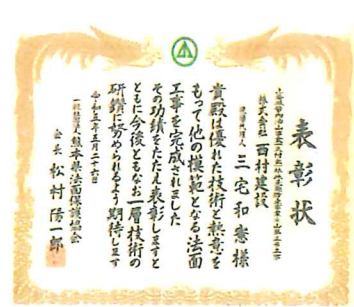 表彰状
株式会社 西村建設
現場代理人 三宅和憲様
貴殿は優れた技術と熱意を
もって他の模範となる法面
工事を完成されました
その功績をたたえ表彰しますと
ともに今後ともなお一層技術の
研鑽に努められるよう期待します
令和五年五月二十六日
一般社団法人熊本県法面保護協会
会長 松村陽一郎